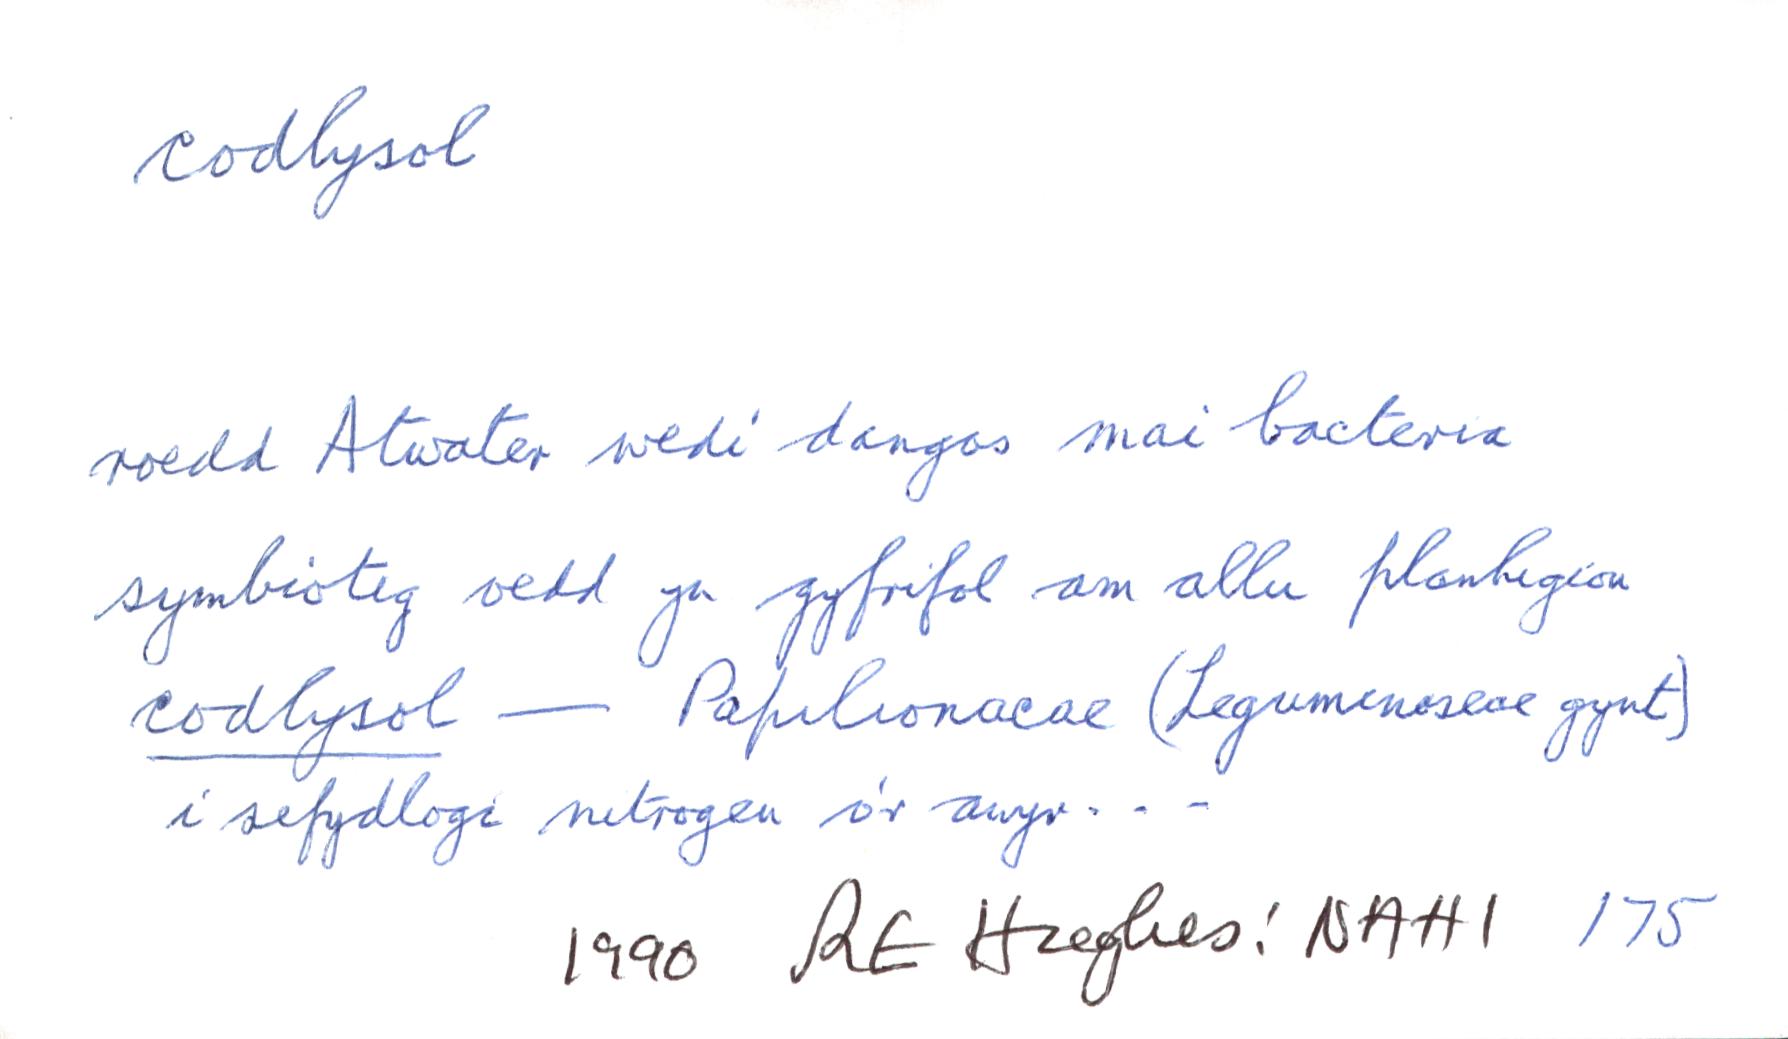 codlysol
roedd Atwater wedi dangos mai bacteria
symbioteg oedd yn gyfrifol am allu planhigion
codlysol — Papilionacae (Legumenoseae gynt)
i sefydlogi nitrogen o'r awyr...
1990 RE Hughes: NAHI 175